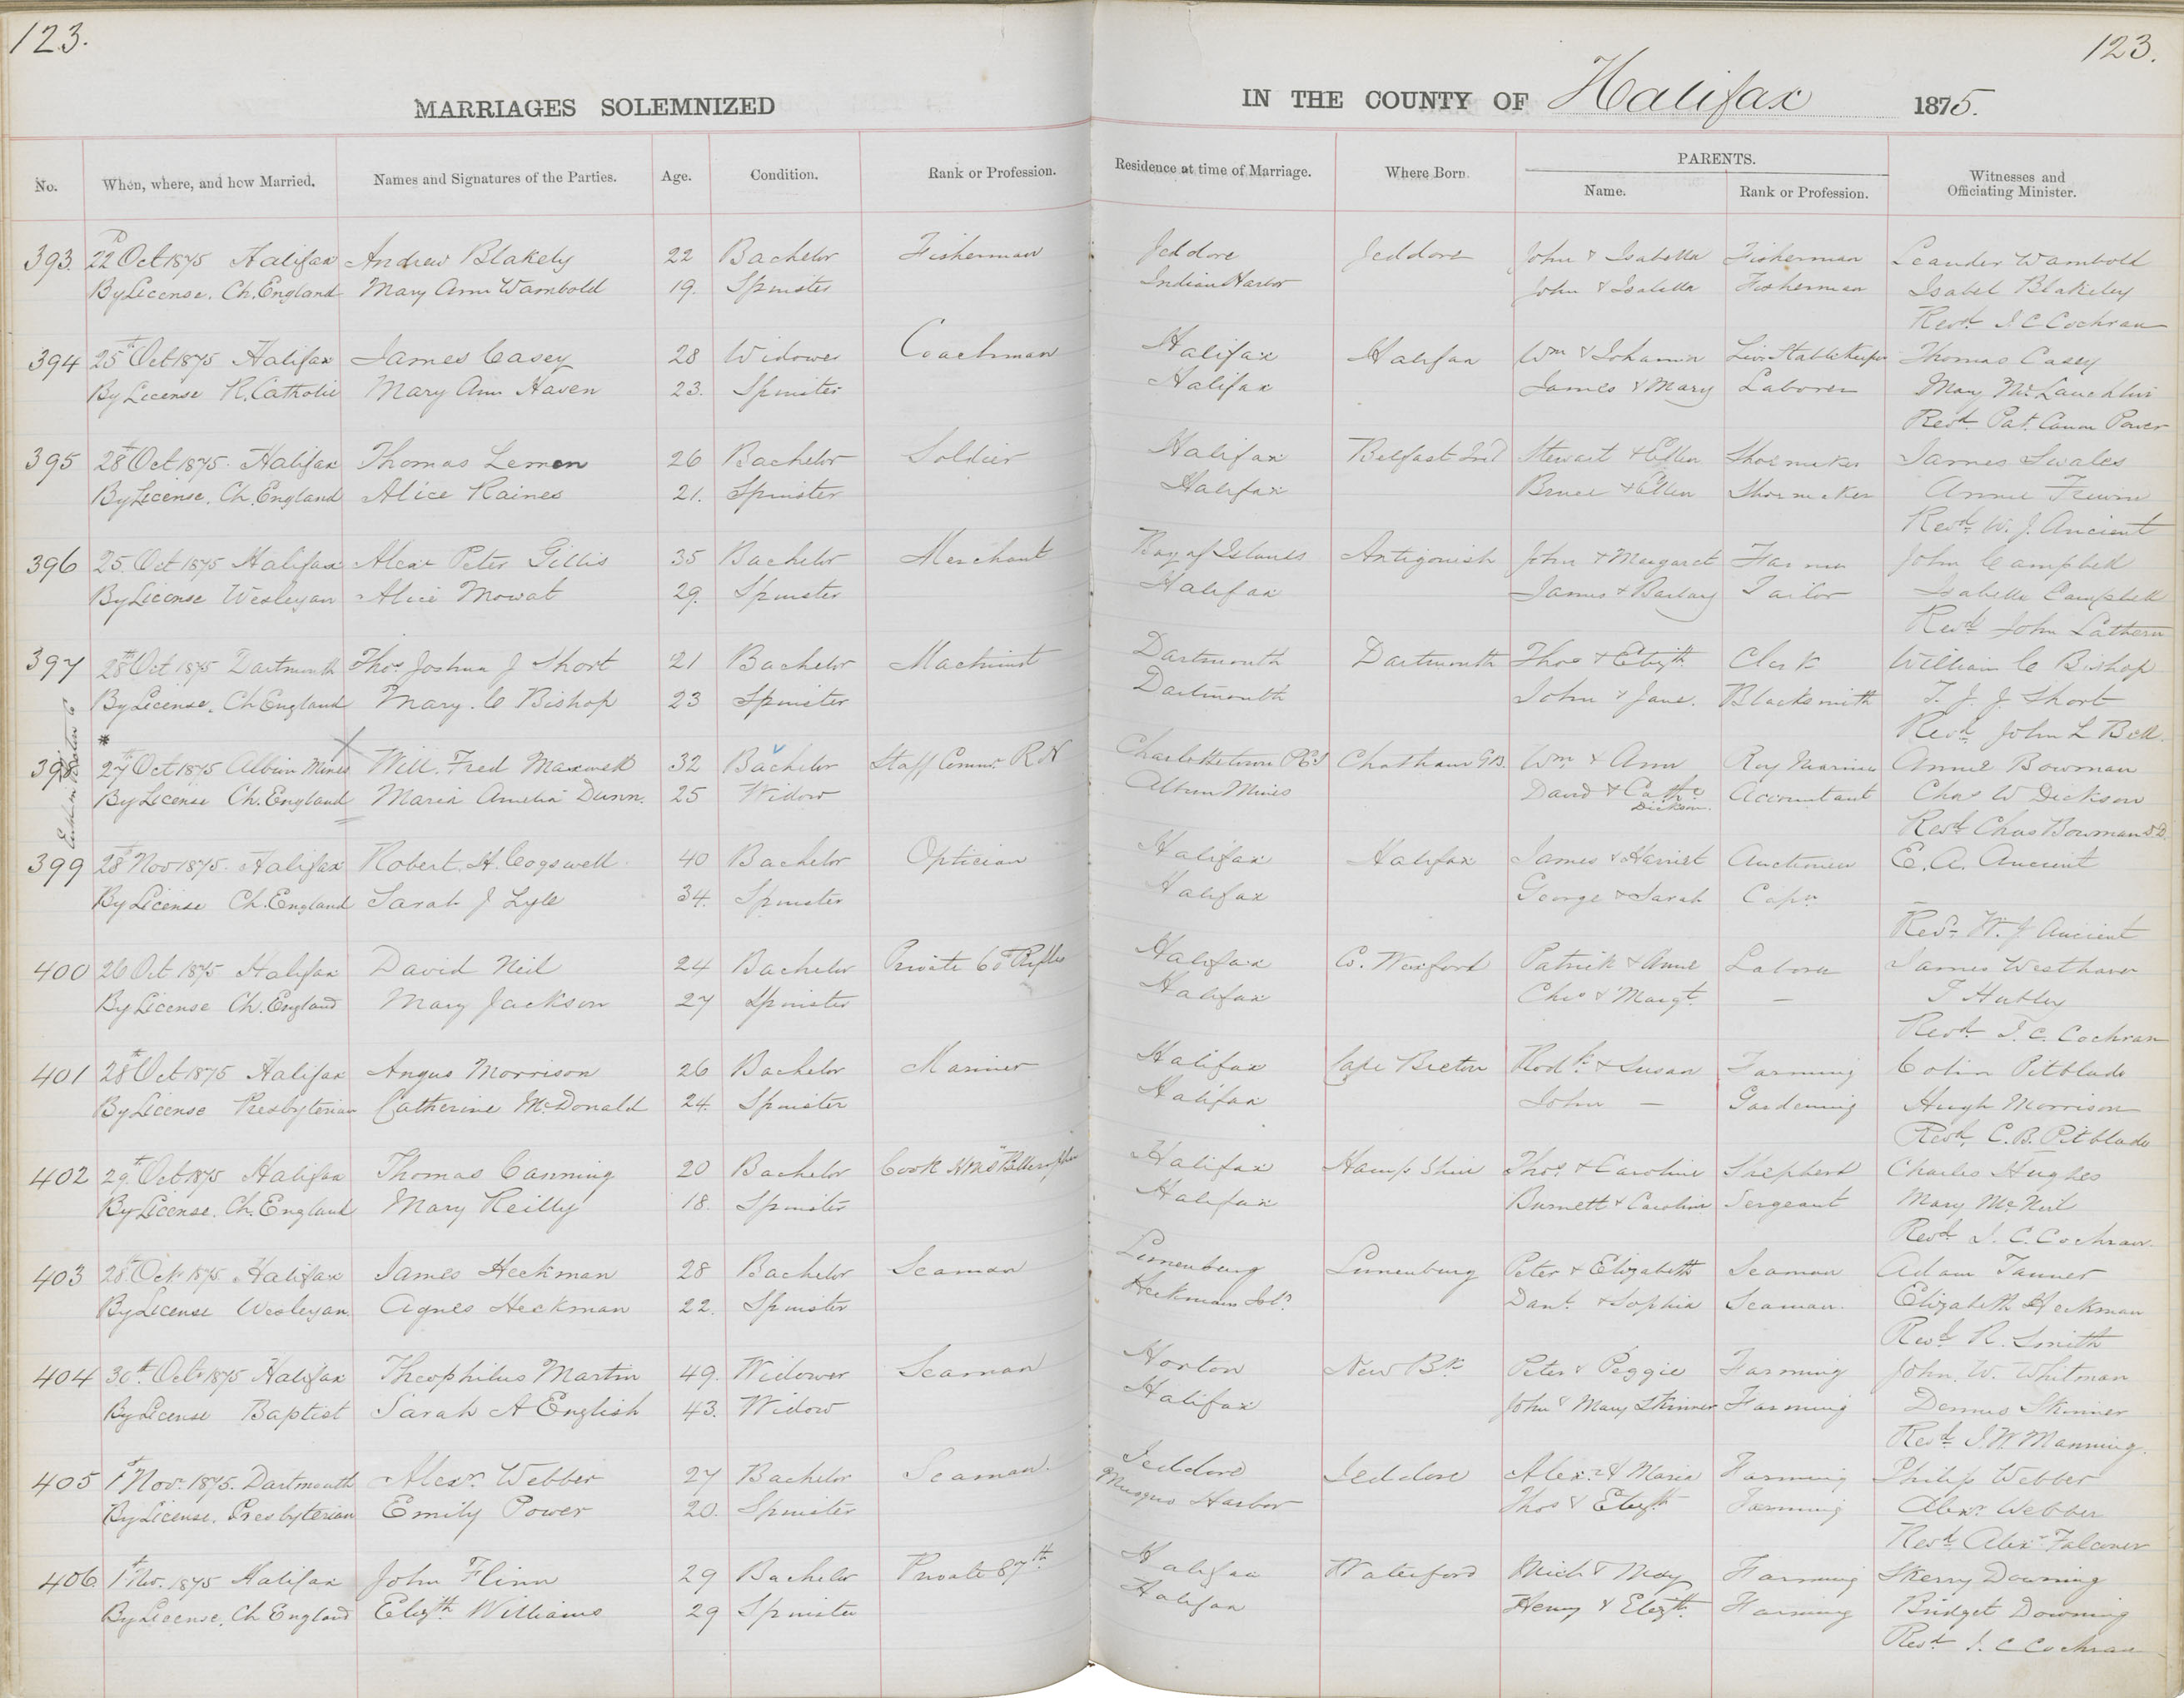 123.
123.
MARRIAGES SOLEMNIZED
IN THE COUNTY OF Halifax 1875.
No. When, where, and how Married. Names and Signatures of the Parties. Age. Condition. Rank or Profession. Residence at time of Marriage. Where Born. PARENTS. Name. Rank or Profession. Witnesses and Officiating Minister.
393. 22 Oct 1875 Halifax Andrew Blakely 22 Bachelor Fisherman Jeddore Jeddore John & Isabella Fisherman Leander Wambold
By License. Ch. England Mary Ann Wambold 19. Spinster Indian Harbor John & Isabella Fisherman Isabel Blakeley
Revd. J C Cochran
394 25th Oct 1875 Halifax James Casey 28 Widower Coachman Halifax Halifax Wm & Johanna Liv. Stable Keeper Thomas Casey
By License R. Catholic Mary Ann Haven 23. Spinster Halifax James & Mary Laborer Mary McLauchlin
Revd. Pat. Canon Power
395 28th Oct 1875. Halifax Thomas Lemon 26 Bachelor Soldier Halifax Belfast Ird Stewart & Ellen Shoemaker James Swales
By License. Ch. England Alice Raines 21. Spinster Halifax Bruce & Ellen Shoemaker Annie
Revd. W. J. Ancient
396 25. Oct 1875 Halifax Alexr Peter Gillis 35 Bachelor Merchant Bay of Islands Antigonish John & Margaret Farmer John Campbell
By License Wesleyan Alice Mowat 29. Spinster Halifax James & Barbary Tailor Isabella Campbell
Revd John Lathern
397 28th Oct 1875 Dartmouth Thos. Joshua J Short 21 Bachelor Machinist Dartmouth Dartmouth Thos & Elizth Clerk William C Bishop
By License. Ch England Mary. C Bishop 23 Spinster Dartmouth John & Jane. Blacksmith T. J. J Short
Revd. John L Bell.
* 398 27th Oct 1875 Albion Mines Will. Fred Maxwell 32 Bachelor Staff Commr. R N Charlottetown PEI Chatham GB. Wm & Ann Roy Marines Annie Bowman
By License Ch. England Maria Amelia Dunn. 25 Widow Albion Mines David & Cathe Dickson. Accountant Chas W Dickson
Revd. Chas Bowman DD.
399 28th Nov 1875. Halifax Robert. H. Cogswell. 40 Bachelor Optician Halifax Halifax James & Harriet E. A. Ancient
By License Ch. England Sarah J Lyle 34. Spinster Halifax George & Sarah Capn.
Revd. W. J Ancient
400 26 Oct. 1875 Halifax David Neil 24 Bachelor Private 60th Rifles Halifax Co. Wexford Patrick & Anne Laborer James Westhaver
By License Ch. England Mary Jackson 27 Spinster Halifax Chas & Margt. — T Hubley
Revd. J. C. Cochran
401 28th Oct 1875 Halifax Angus Morrison 26 Bachelor Mariner Halifax Cape Breton Rodk. & Susan Farming Colin Pitblado
By License Presbyterian Catherine McDonald 24. Spinster Halifax John — Gardening Hugh Morrison
Revd. C. B. Pitblado
402 29th Oct 1875 Halifax Thomas Canning 20 Bachelor Cook HMS "Bellerophon Halifax Hampshire Thos. & Caroline Shepherd Charles Hughes
By License. Ch. England Mary Reilly 18. Spinster Halifax Burnett & Caroline Sergeant Mary McNeil
Revd. J. C. Cochran.
403 28th Oct. 1875 Halifax James Heckman 28 Bachelor Seaman Lunenburg Lunenburg Peter & Elizabeth Seaman Adam Tanner
By License Wesleyan Agnes Heckman 22. Spinster Heckmans Isld. Danl. & Sophia Seaman. Elizabeth Heckman
Revd. R. Smith
404 30th. Oct. 1875 Halifax Theophilus Martin 49. Widower Seaman Horton New Bk. Peter & Peggie Farming John. W. Whitman
By License Baptist Sarah A English 43. Widow Halifax John & Mary Skinner Farming Dennis Skinner
Revd. J. W Manning.
405 1st Nov. 1875. Dartmouth Alexr. Webber 27 Bachelor Seaman. Jeddore Jeddore Alexr. & Maria Farming Philip Webber
By License. Presbyterian Emily Power 20. Spinster Musquo Harbor Thos & Elizth Farming Alexr. Webber
Revd Alexr Falconer
406. 1st Nov. 1875 Halifax John Flinn 29 Bachelor Private 87th. Halifax Waterford Mich & May Farming Skerry Downing
By License. Ch England Elizth Williams 29 Spinster Halifax Henry & Elizth. Farming Bridget Downing
Revd. J. C Cochran